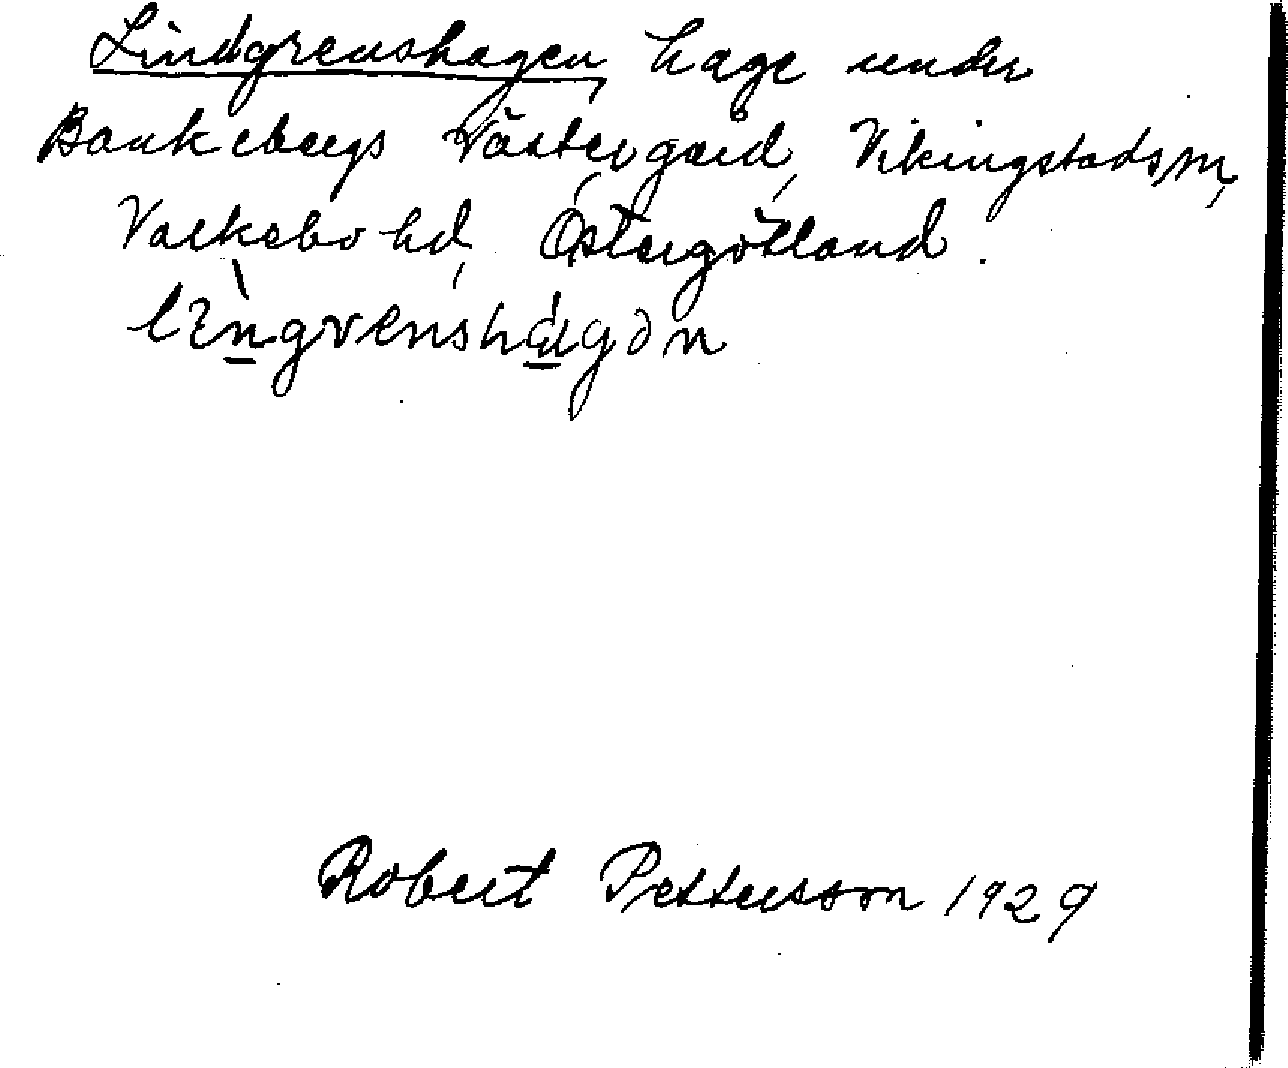 Lindgrenshagen, hage under
Bankebergs Västergård, Vikingstads sn,
Valkebo hd, Östergötland.
Robert Pettersson 1929